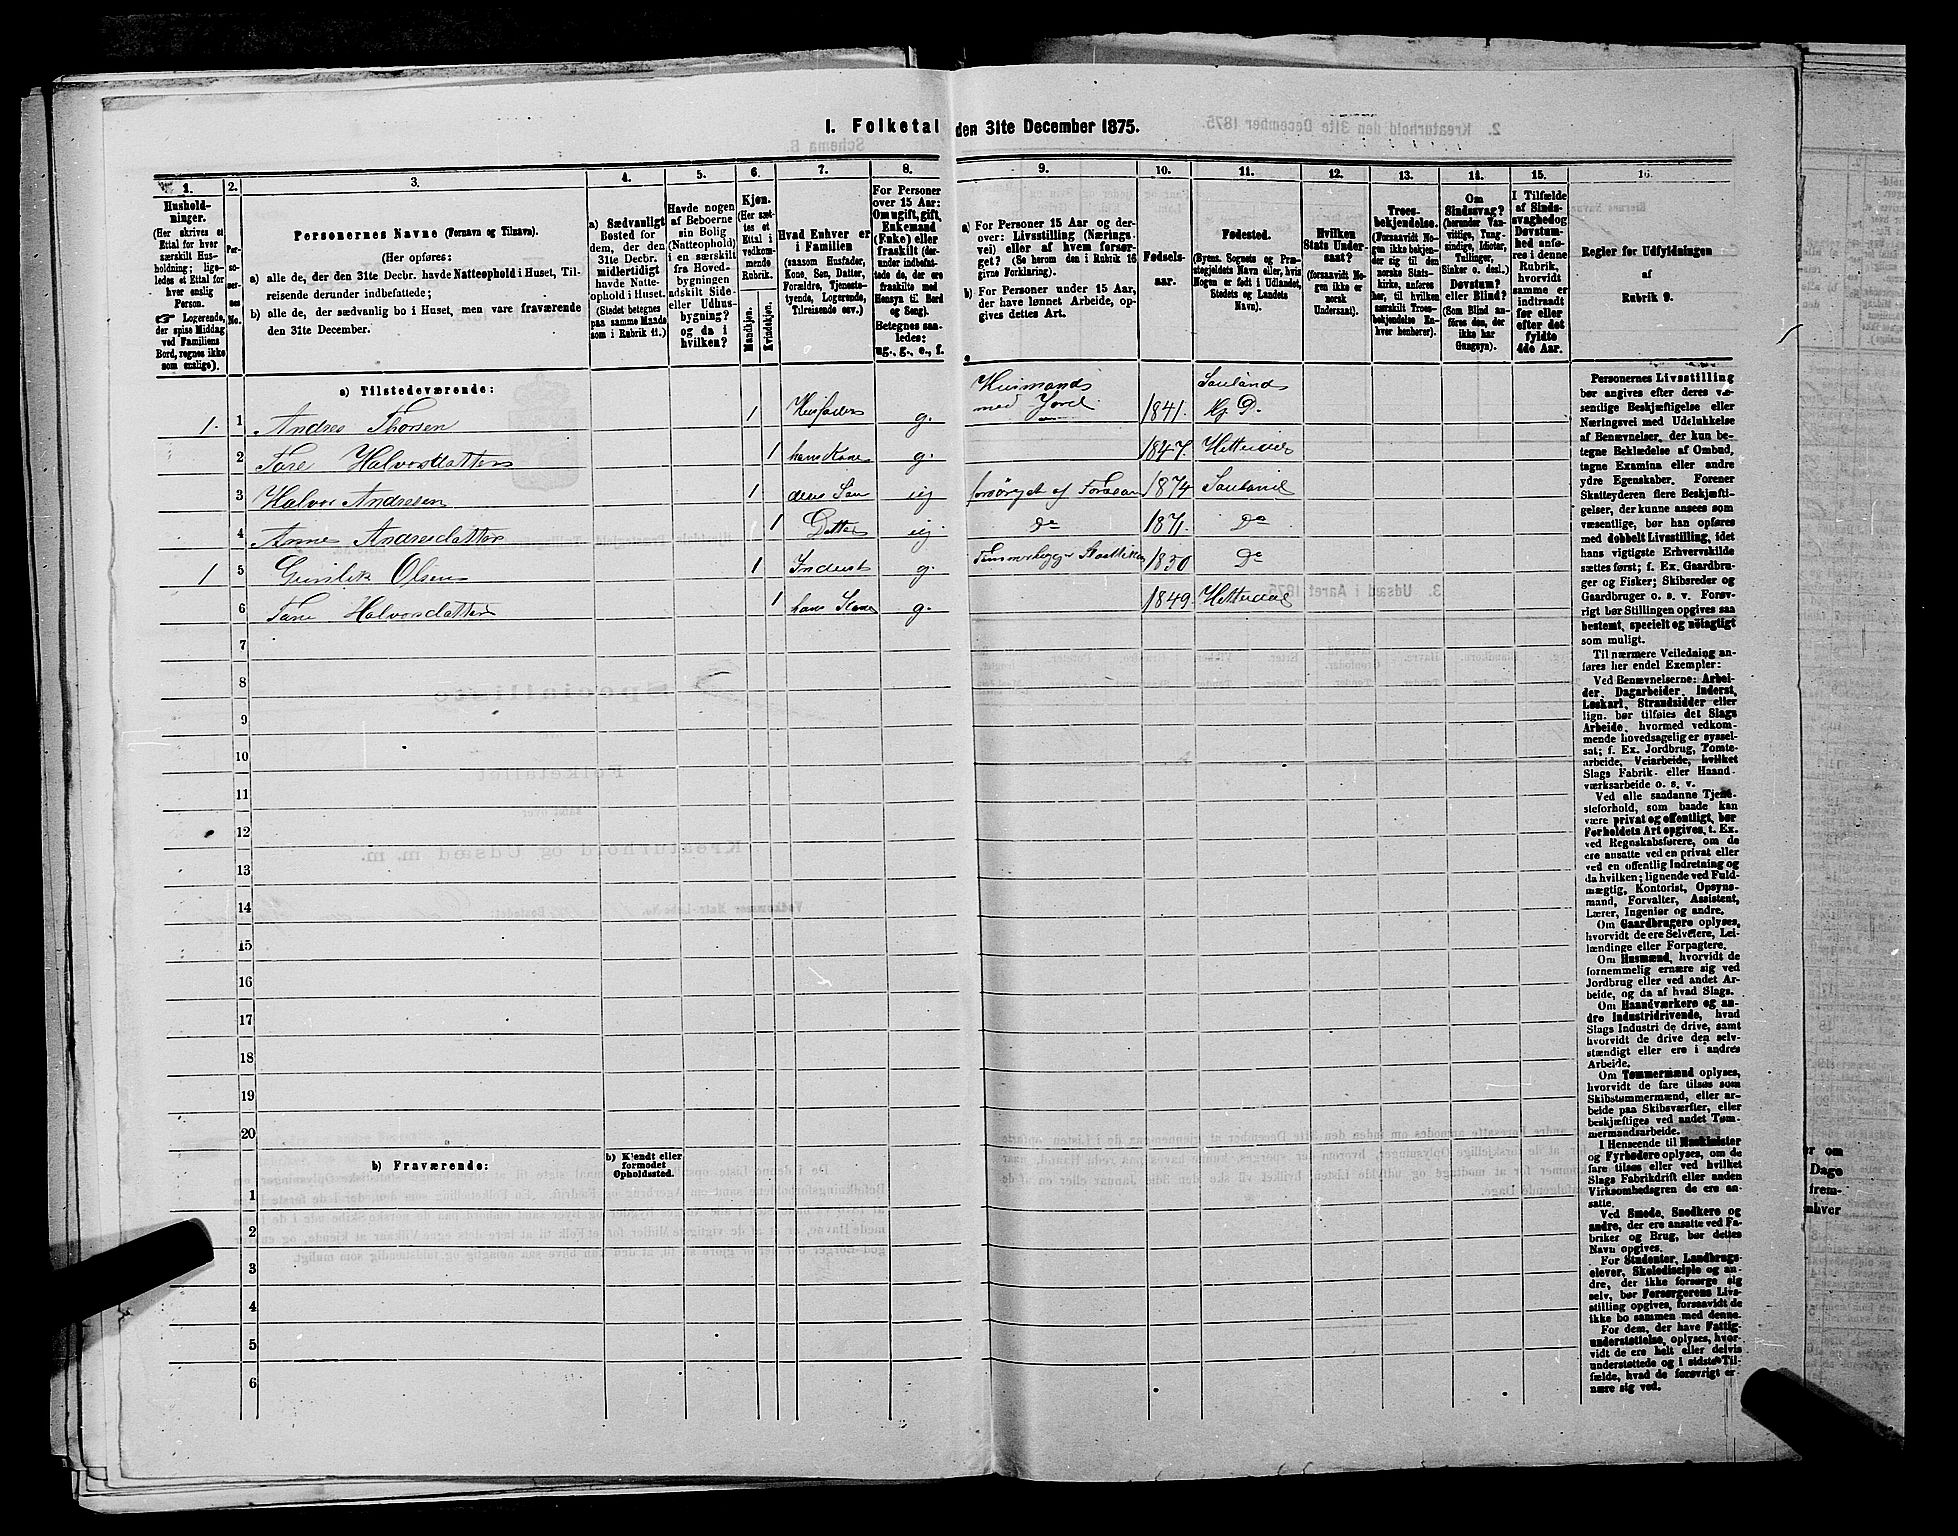 I. Folketal den 31te December 1875.
1.
2.
3.
4.
5.
6.
7.
8.
9.
10.
11.
12.
13.
14.
15.
16.
Hushold-
ninger.
(Her skrives et
Ettal for hver
særskilt Hus-
holdning; lige-
ledes et Ettal for
hver enslig
Person.
☞ Logerende,
der spise Middag
ved Familiens
Bord, regnes ikke
som enslige).
Per-
so-
ner-
nes
No.
Personernes Navne (Fornavn og Tilnavn).
(Her opføres:
a) alle de, der den 31te Decbr. havde Natteophold i Huset, Til-
reisende derunder indbefattede;
b) alle de, der sædvanlig bo i Huset, men vare fraværende
den 31te December.
a) Sædvanligt
Bosted for
dem, der den
31te Decbr.
midlertidigt
havde Natte-
ophold i Huset.
(Stedet betegnes
paa samme Maade
som i Rubrik 11.)
Havde nogen
af Beboerne
sin Bolig
(Natteophold)
i en særskilt
fra Hoved-
bygningen
adskilt Side-
eller Udhus-
bygning?
og da i
hvilken?
Kjøn.
(Her sæt-
tes et
Ettal i
vedkom-
mende
Rubrik.
Mandkjøn.
Kvindekjøn.
Hvad Enhver er
i Familien
(saasom Husfader,
Kone, Søn, Datter,
Forældre, Tjeneste-
tyende, Logerende,
Tilreisende osv.)
For Personer
over 15 Aar:
Om ugift, gift,
Enkemand
(Enke) eller
fraskilt (der-
under indbefat-
tede de, der ere
fraskilte med
Hensyn til Bord
og Seng).
Betegnes saa-
ledes:
ug., g., e., f.
a) For Personer 15 Aar og der-
over: Livsstilling (Nærings-
vei) eller af hvem forsør-
get? (Se herom den i Rubrik 16
givne Forklaring).
b) For Personer under 15 Aar,
der have lønnet Arbeide, op-
gives dettes Art.
Fødsels-
aar.
Fødested.
(Byens, Sognets og Præ-
stegjeldets Navn eller, hvis
Nogen er født i Udlandet,
Stedets og Landets
Navn).
Hvilken
Stats Under-
saat?
(forsaavidt No-
gen ikke er
norsk
Undersaat).
Troes-
bekjendelse.
(Forsaavidt No-
gen ikke bekjen-
der sig til den
norske Stats-
kirke, anføres
her, til hvilken
særskilt Troes-
bekjendelse En-
hver henhører).
Om
Sindssvag?
(herunder Van-
vittige, Tung-
sindige, Idioter,
Tullinger,
Sinker o. desl.)
Døvstum?
eller Blind?
(Som Blind an-
føres den, der
ikke har
Gangsyn).
I Tilfælde
af Sinds-
svaghed og
Døvstum-
hed anfø-
res i denne
Rubrik,
hvorvidt
samme er
indtraadt
før eller
efter det
fyldte
4de Aar.
Regler for Udfyldningen
af
Rubrik 9.
a) Tilstedeværende:
1. 1 Andres Thorsen 1 Husfader g. Husmand med Jord 1841. Sauland
2 Tore Halvorsdatter 1 hans Kone g. 1847. Hetterdal
3 Halvor Andresen 1 deres Søn forsørget af 1874 Sauland
4 Anne Andresdatter 1 Datter Do 1871. Do
1 5 Gunlik Olsen 1 Inderst g. 1850 Do
6 Tone Halvorsdatter 1 hans Kone g. 1849. Hetterdal
7
8
9
10
11
12
13
14
15
16
17
18
19
20
b) Fraværende:
b) Kjendt eller
formodet
Opholdssted.
1
2
3
4
5
6
Personernes Livsstilling
bør angives efter deres væ-
sentlige Beskjæftigelse eller
Næringsvei med Udelukkelse
af Benævnelser, der kun be-
tegne Beklædelse af Ombud,
tagne Examina eller andre
ydre Egenskaber. Forener
Skatteyderen flere Beskjæfti-
gelser, der kunne ansees som
væsentlige, bør han opføres
med dobbelt Livsstilling, idet
hans vigtigste Erhvervskilde
sættes først; f. Ex. Gaardbru-
ger og Fisker; Skibsreder og
Gaardbruger o. s. v. Forøv-
rigt bør Stillingen opgives saa
bestemt, specielt og nøiagtigt
som muligt.
Til nærmere Veiledning an-
føres her endel Exempler:
Ved Benævnelserne: Arbei-
der, Dagarbeider, Inderst,
Løskarl, Strandsidder eller
lign. bør tilføies det Slags
Arbeide, hvormed vedkom-
mende hovedsagelig er syssel-
sat; f. Ex. Jordbrug, Tomte-
arbeide, Veiarbeide, hvilket
Slags Fabrik- eller Haand-
værksarbeide o. s. v.
Ved alle saadanne Tjene-
steforhold, som baade kan
være privat og offentligt, bør
Forholdets Art opgives, t. Ex.
ved Regnskabsførere, om de
ere ansatte ved en privat eller
ved en offentlig Indretning og
da hvilken; lignende ved Fuld-
mægtig, Kontorist, Opsyns-
mand, Forvalter, Assistent,
Lærer, Ingeniør og andre.
Om Gaardbrugere oplyses,
hvorvidt de ere Selveiere, Lei-
lændinge eller Forpagtere.
Om Husmænd, hvorvidt de
fornemmelig ernære sig ved
Jordbrug eller ved andet Ar-
beide, og da af hvad Slags.
Om Haandværkere og an-
dre Industridrivende, hvad
Slags Industri de drive, samt
hvorvidt de drive den selv-
stændigt eller ere i andres
Arbeide.
Om Tømmermænd oplyses,
hvorvidt de fare tilsøs som
Skibstømmermænd, eller ar-
beide paa Skibsværfter, eller
beskjæftiges ved andet Tøm-
mermandsarbeide.
I Henseende til Maskinister
og Fyrbødere oplyses, om de
fare tilsøs eller ved hvilket
Slags Fabrikdrift eller anden
Virksomhedsgren de ere an-
satte.
Ved Smede, Snedkere og
andre, der ere ansatte ved Fa-
briker og Brug, bør dettes
Navn opgives.
For Studenter, Landbrugs-
elever, Skoledisciple og an-
dre, der ikke forsørge sig
selv, bør Forsørgerens Livs-
stilling opgives, forsaavidt de
ikke bo sammen med denne.
For dem, der have Fattig-
understøttelse, oplyses, hvor-
vidt de ere helt eller delvis
understøttede og i sidste Til-
fælde, hvad de forøvrigt er-
nære sig ved.